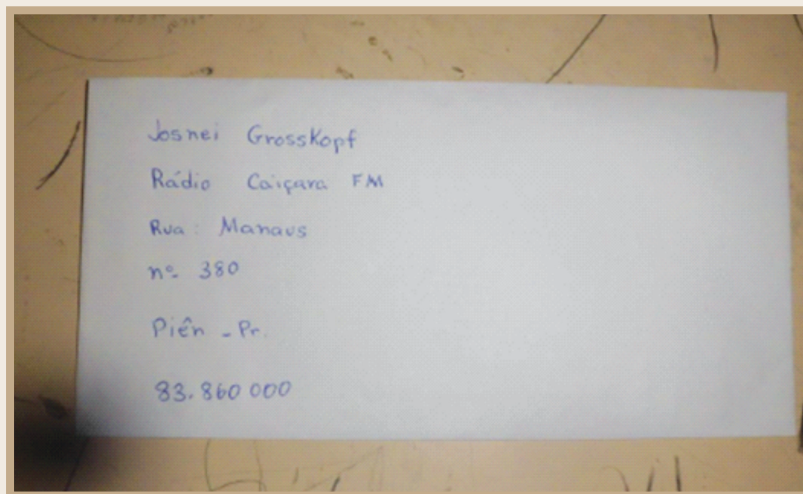 Josnei Grosskopf
Rádio Caiçara FM
Rua: Manaus
nº 380
Piên - Pr.
83.860 000